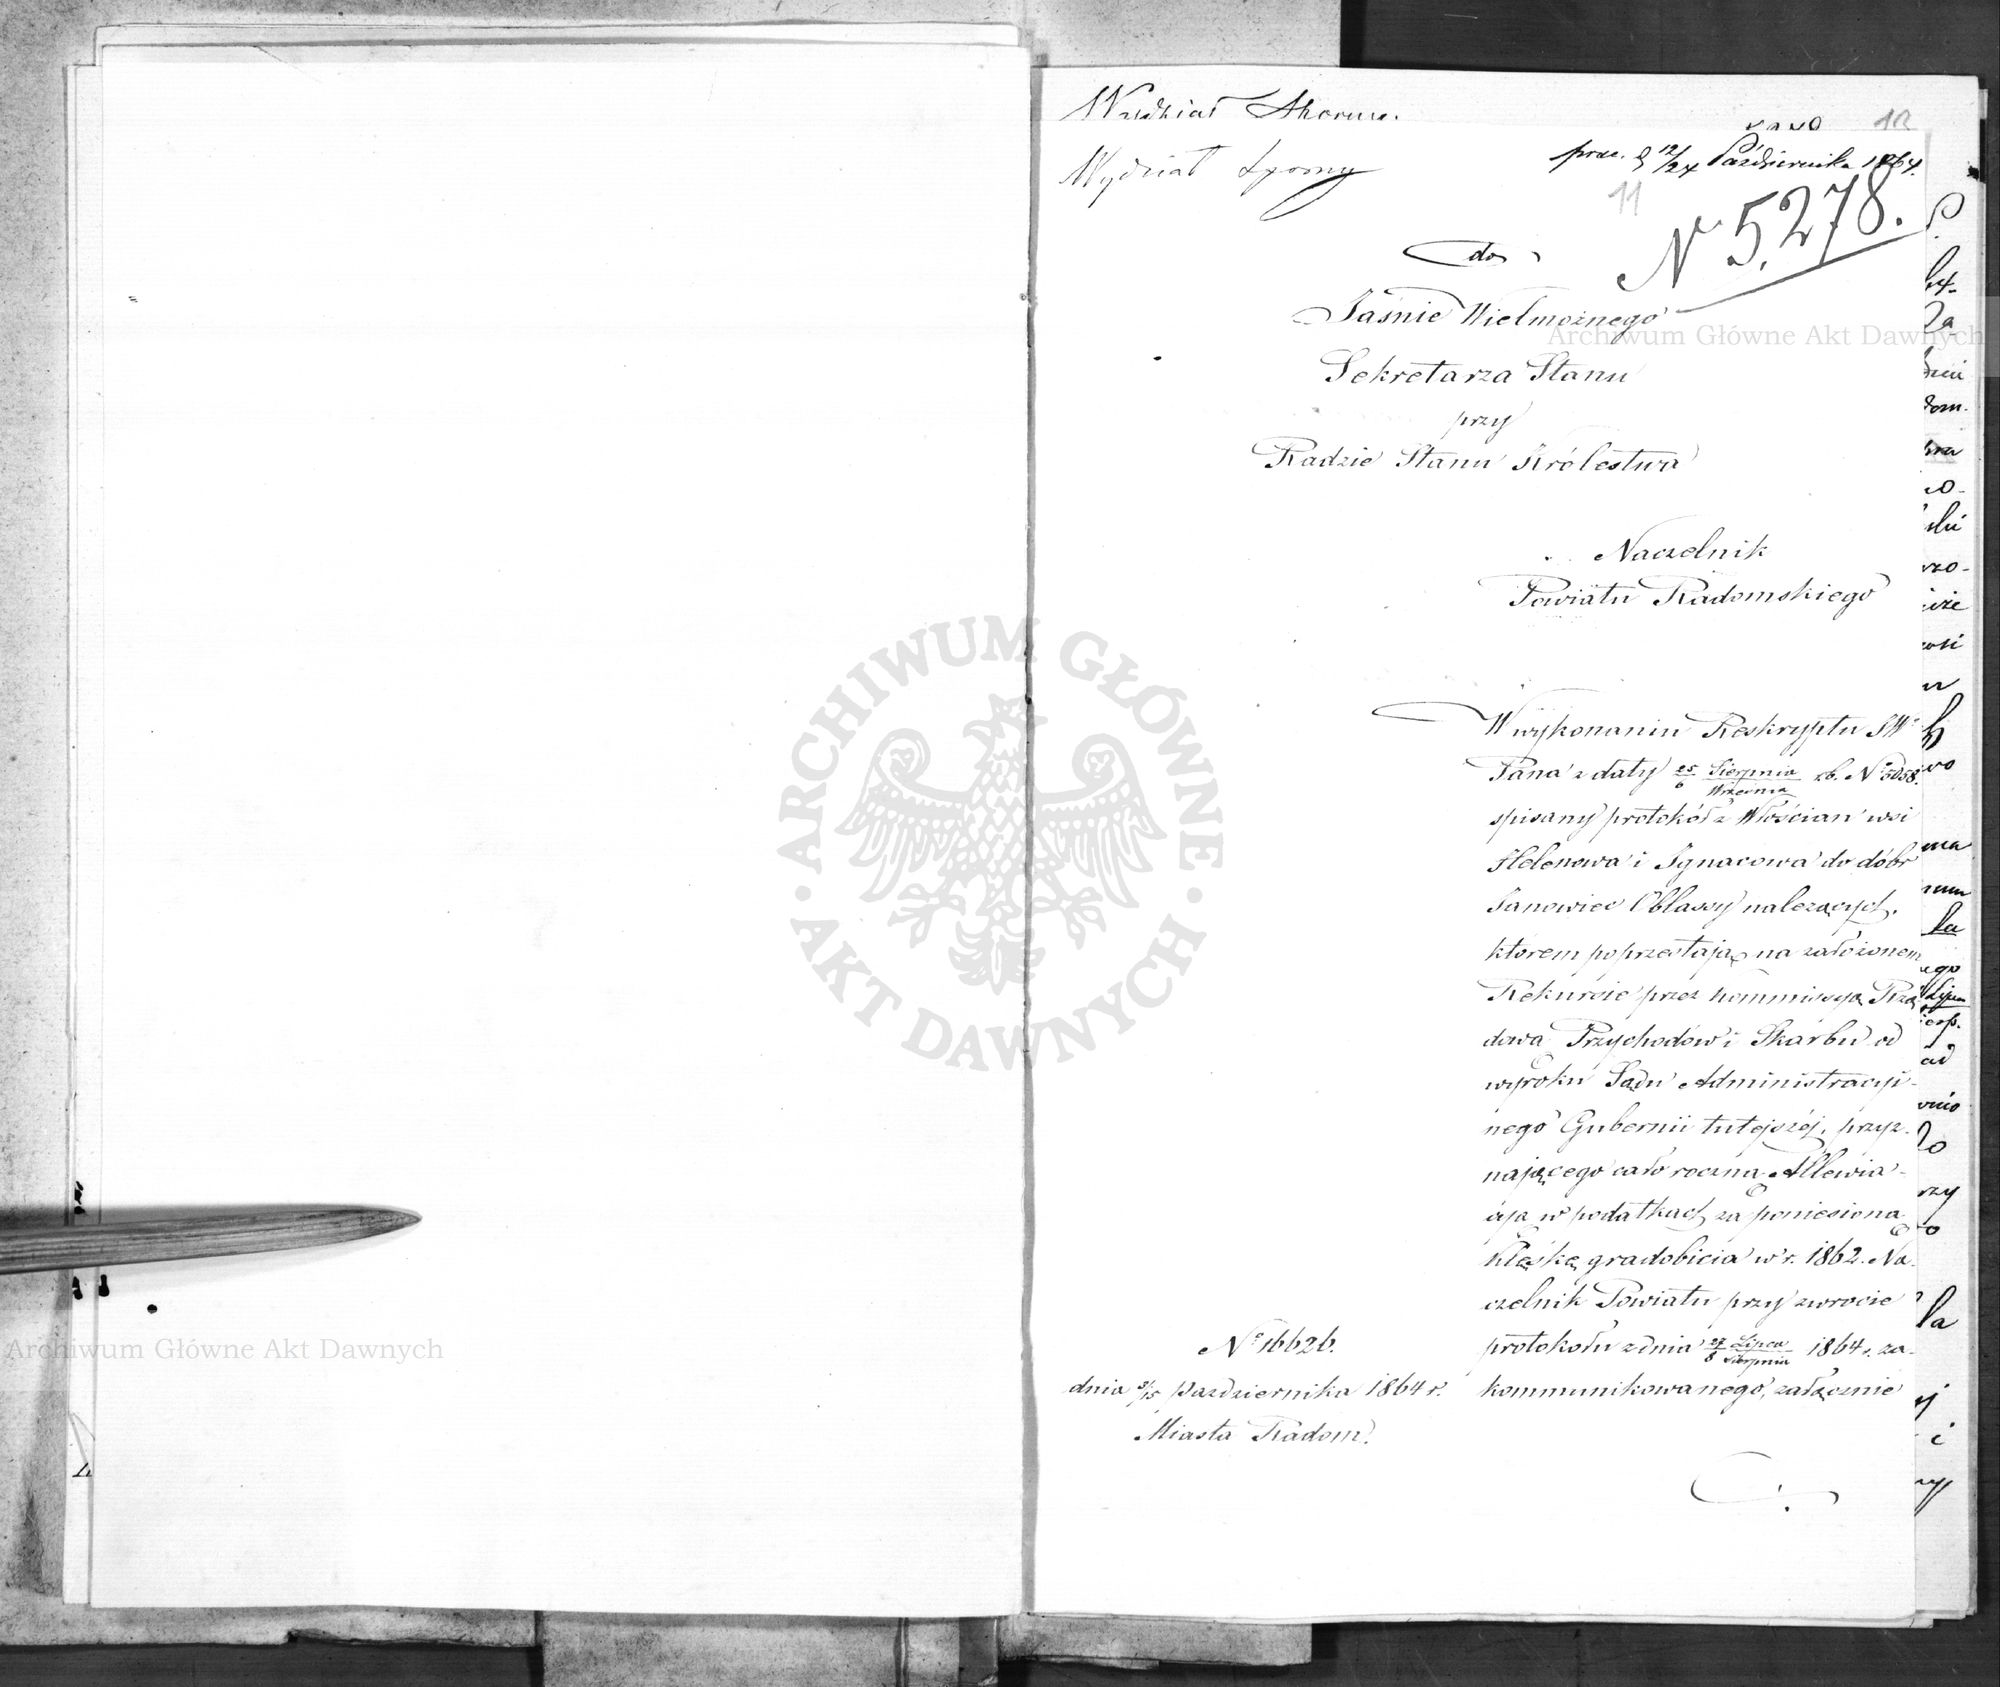 Wydział Sporny
prez. d 12/24 Października 1864.
12
11
N 5,278.
do
Jaśnie Wielmożnego
Sekretarza Stanu
przy
Radzie Stanu Królestwa
Naczelnik
Powiatu Radomskiego
W wykonaniu Reskryptu JW
Pana z daty 25/6 Sierpnia/Września rb. No 5058.
spisany protokół z Włościan wsi
Helenowa i Ignacowa do dóbr
Janowiec Oblassy należących,
którem poprzestają na założonem
Rekursie przez Kommissyą Rzą-
dową Przychodów i Skarbu od
wyroku Sądu Administracyj-
nego Gubernii tutejszéj, przyz-
nającego cało roczną Allewia-
cją w podatkach za poniesioną
Klęskę gradobicia w r. 1862. Na-
czelnik Powiatu przy zwrocie
protokołu z dnia 27/8 Lipca/Sierpnia 1864 r. za-
kommunikowanego, załącznie
No 16626.
dnia 3/15 Października 1864 r.
Miasto Radom.
Archiwum Główne Akt Dawnych
ARCHIWUM GŁÓWNE · AKT DAWNYCH ·
Archiwum Główne Akt Dawnych